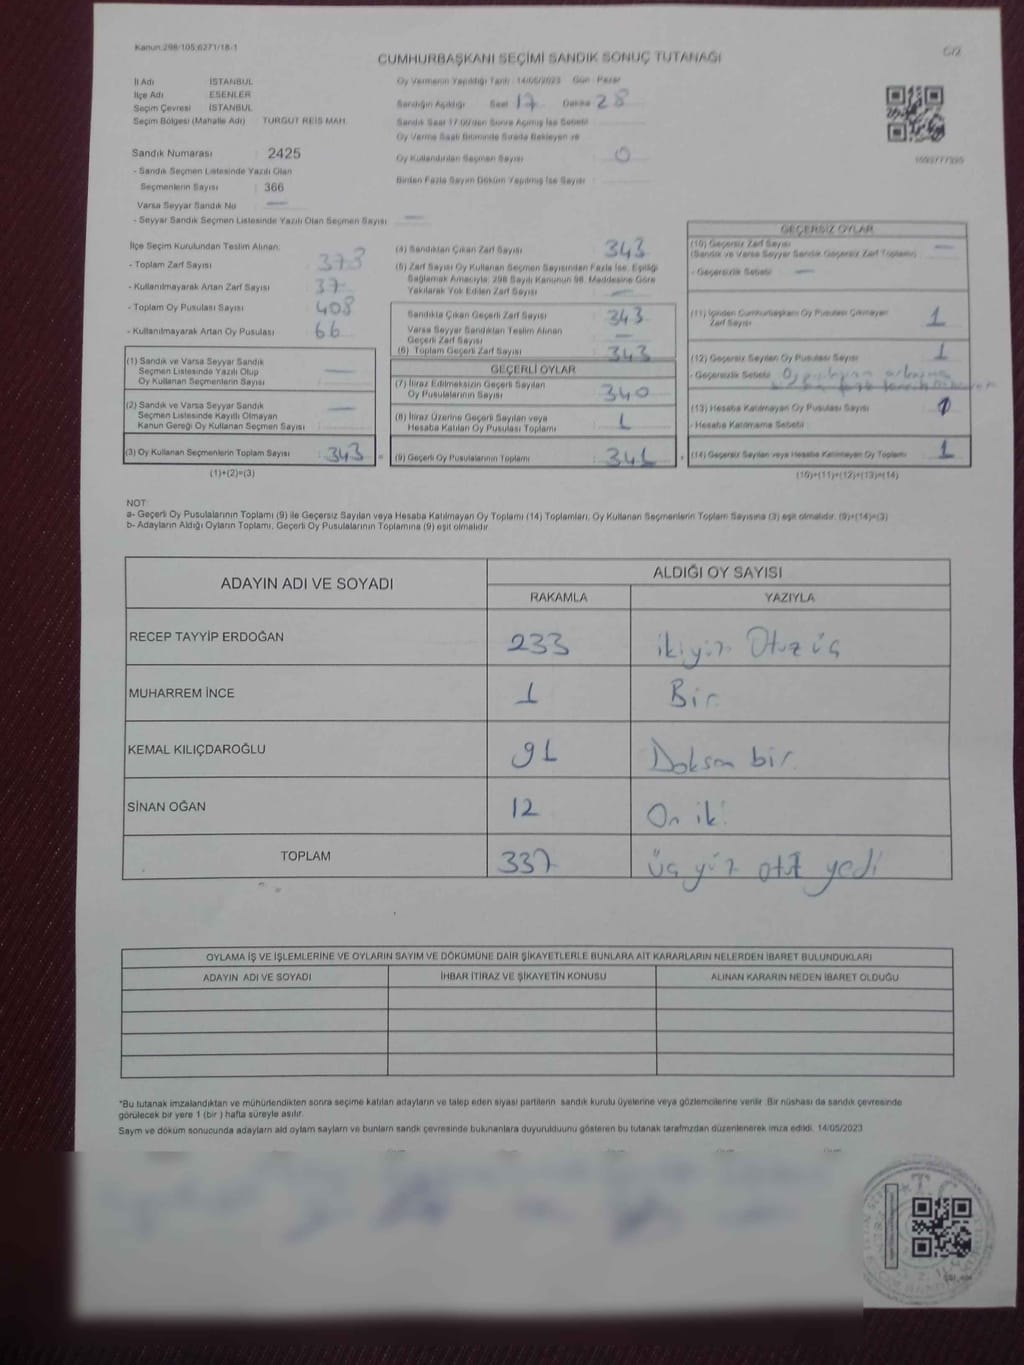 Kanun:298/105;6271/18-1
C/2
CUMHURBAŞKANI SEÇİMİ SANDIK SONUÇ TUTANAĞI
İl Adı : İSTANBUL
İlçe Adı : ESENLER
Seçim Çevresi : İSTANBUL
Seçim Bölgesi (Mahalle Adı) : TURGUT REİS MAH.
Sandık Numarası : 2425
- Sandık Seçmen Listesinde Yazılı Olan
Seçmenlerin Sayısı : 366
Varsa Seyyar Sandık No : —
- Seyyar Sandık Seçmen Listesinde Yazılı Olan Seçmen Sayısı : —
Oy Vermenin Yapıldığı Tarih : 14/05/2023 Gün : Pazar
Sandığın Açıldığı Saat 17 Dakika 28
Sandık Saat 17:00'den Sonra Açılmış İse Sebebi :
Oy Verme Saati Bitiminde Sırada Bekleyen ve
Oy Kullandırılan Seçmen Sayısı : 0
Birden Fazla Sayım Döküm Yapılmış İse Sayısı :
İlçe Seçim Kurulundan Teslim Alınan:
- Toplam Zarf Sayısı : 373
- Kullanılmayarak Artan Zarf Sayısı : 37
- Toplam Oy Pusulası Sayısı : 408
- Kullanılmayarak Artan Oy Pusulası : 66
(1) Sandık ve Varsa Seyyar Sandık
Seçmen Listesinde Yazılı Olup
Oy Kullanan Seçmenlerin Sayısı : —
(2) Sandık ve Varsa Seyyar Sandık
Seçmen Listesinde Kayıtlı Olmayan
Kanun Gereği Oy Kullanan Seçmen Sayısı : —
(3) Oy Kullanan Seçmenlerin Toplam Sayısı : 343
(1)+(2)=(3)
(4) Sandıktan Çıkan Zarf Sayısı : 343
(5) Zarf Sayısı Oy Kullanan Seçmen Sayısından Fazla İse, Eşitliği
Sağlamak Amacıyla; 298 Sayılı Kanunun 98. Maddesine Göre
Yakılarak Yok Edilen Zarf Sayısı : —
Sandıkta Çıkan Geçerli Zarf Sayısı : 343
Varsa Seyyar Sandıktan Teslim Alınan
Geçerli Zarf Sayısı : —
(6) Toplam Geçerli Zarf Sayısı : 343
GEÇERLİ OYLAR
(7) İtiraz Edilmeksizin Geçerli Sayılan
Oy Pusulalarının Sayısı : 340
(8) İtiraz Üzerine Geçerli Sayılan veya
Hesaba Katılan Oy Pusulası Toplamı : 1
(9) Geçerli Oy Pusulalarının Toplamı : 341
GEÇERSİZ OYLAR
(10) Geçersiz Zarf Sayısı : —
(Sandık ve Varsa Seyyar Sandık Geçersiz Zarf Toplamı)
- Geçersizlik Sebebi : —
(11) İçinden Cumhurbaşkanı Oy Pusulası Çıkmayan
Zarf Sayısı : 1
(12) Geçersiz Sayılan Oy Pusulası Sayısı : 1
- Geçersizlik Sebebi :
(13) Hesaba Katılmayan Oy Pusulası Sayısı :
- Hesaba Katılmama Sebebi :
(14) Geçersiz Sayılan veya Hesaba Katılmayan Oy Toplamı : 1
(10)+(11)+(12)+(13)=(14)
NOT:
a- Geçerli Oy Pusulalarının Toplamı (9) ile Geçersiz Sayılan veya Hesaba Katılmayan Oy Toplamı (14) Toplamları, Oy Kullanan Seçmenlerin Toplam Sayısına (3) eşit olmalıdır. (9)+(14)=(3)
b- Adayların Aldığı Oyların Toplamı, Geçerli Oy Pusulalarının Toplamına (9) eşit olmalıdır.
ADAYIN ADI VE SOYADI
ALDIĞI OY SAYISI
RAKAMLA YAZIYLA
RECEP TAYYİP ERDOĞAN 233 ikiyüz Otuz üç
MUHARREM İNCE 1 Bir
KEMAL KILIÇDAROĞLU 91 Doksan bir
SİNAN OĞAN 12 On iki
TOPLAM 337 üç yüz otuz yedi
OYLAMA İŞ VE İŞLEMLERİNE VE OYLARIN SAYIM VE DÖKÜMÜNE DAİR ŞİKAYETLERLE BUNLARA AİT KARARLARIN NELERDEN İBARET BULUNDUKLARI
ADAYIN ADI VE SOYADI İHBAR İTİRAZ VE ŞİKAYETİN KONUSU ALINAN KARARIN NEDEN İBARET OLDUĞU
*Bu tutanak imzalandıktan ve mühürlendikten sonra seçime katılan adayların ve talep eden siyasi partilerin sandık kurulu üyelerine veya gözlemcilerine verilir. Bir nüshası da sandık çevresinde
görülecek bir yere 1 (bir ) hafta süreyle asılır.
Saym ve döküm sonucunda adayların ald oylarn saylarn ve bunlarn sandk çevresinde bulunanlara duyurulduunu gösteren bu tutanak tarafmzdan düzenlenerek imza edildi. 14/05/2023
T.C.